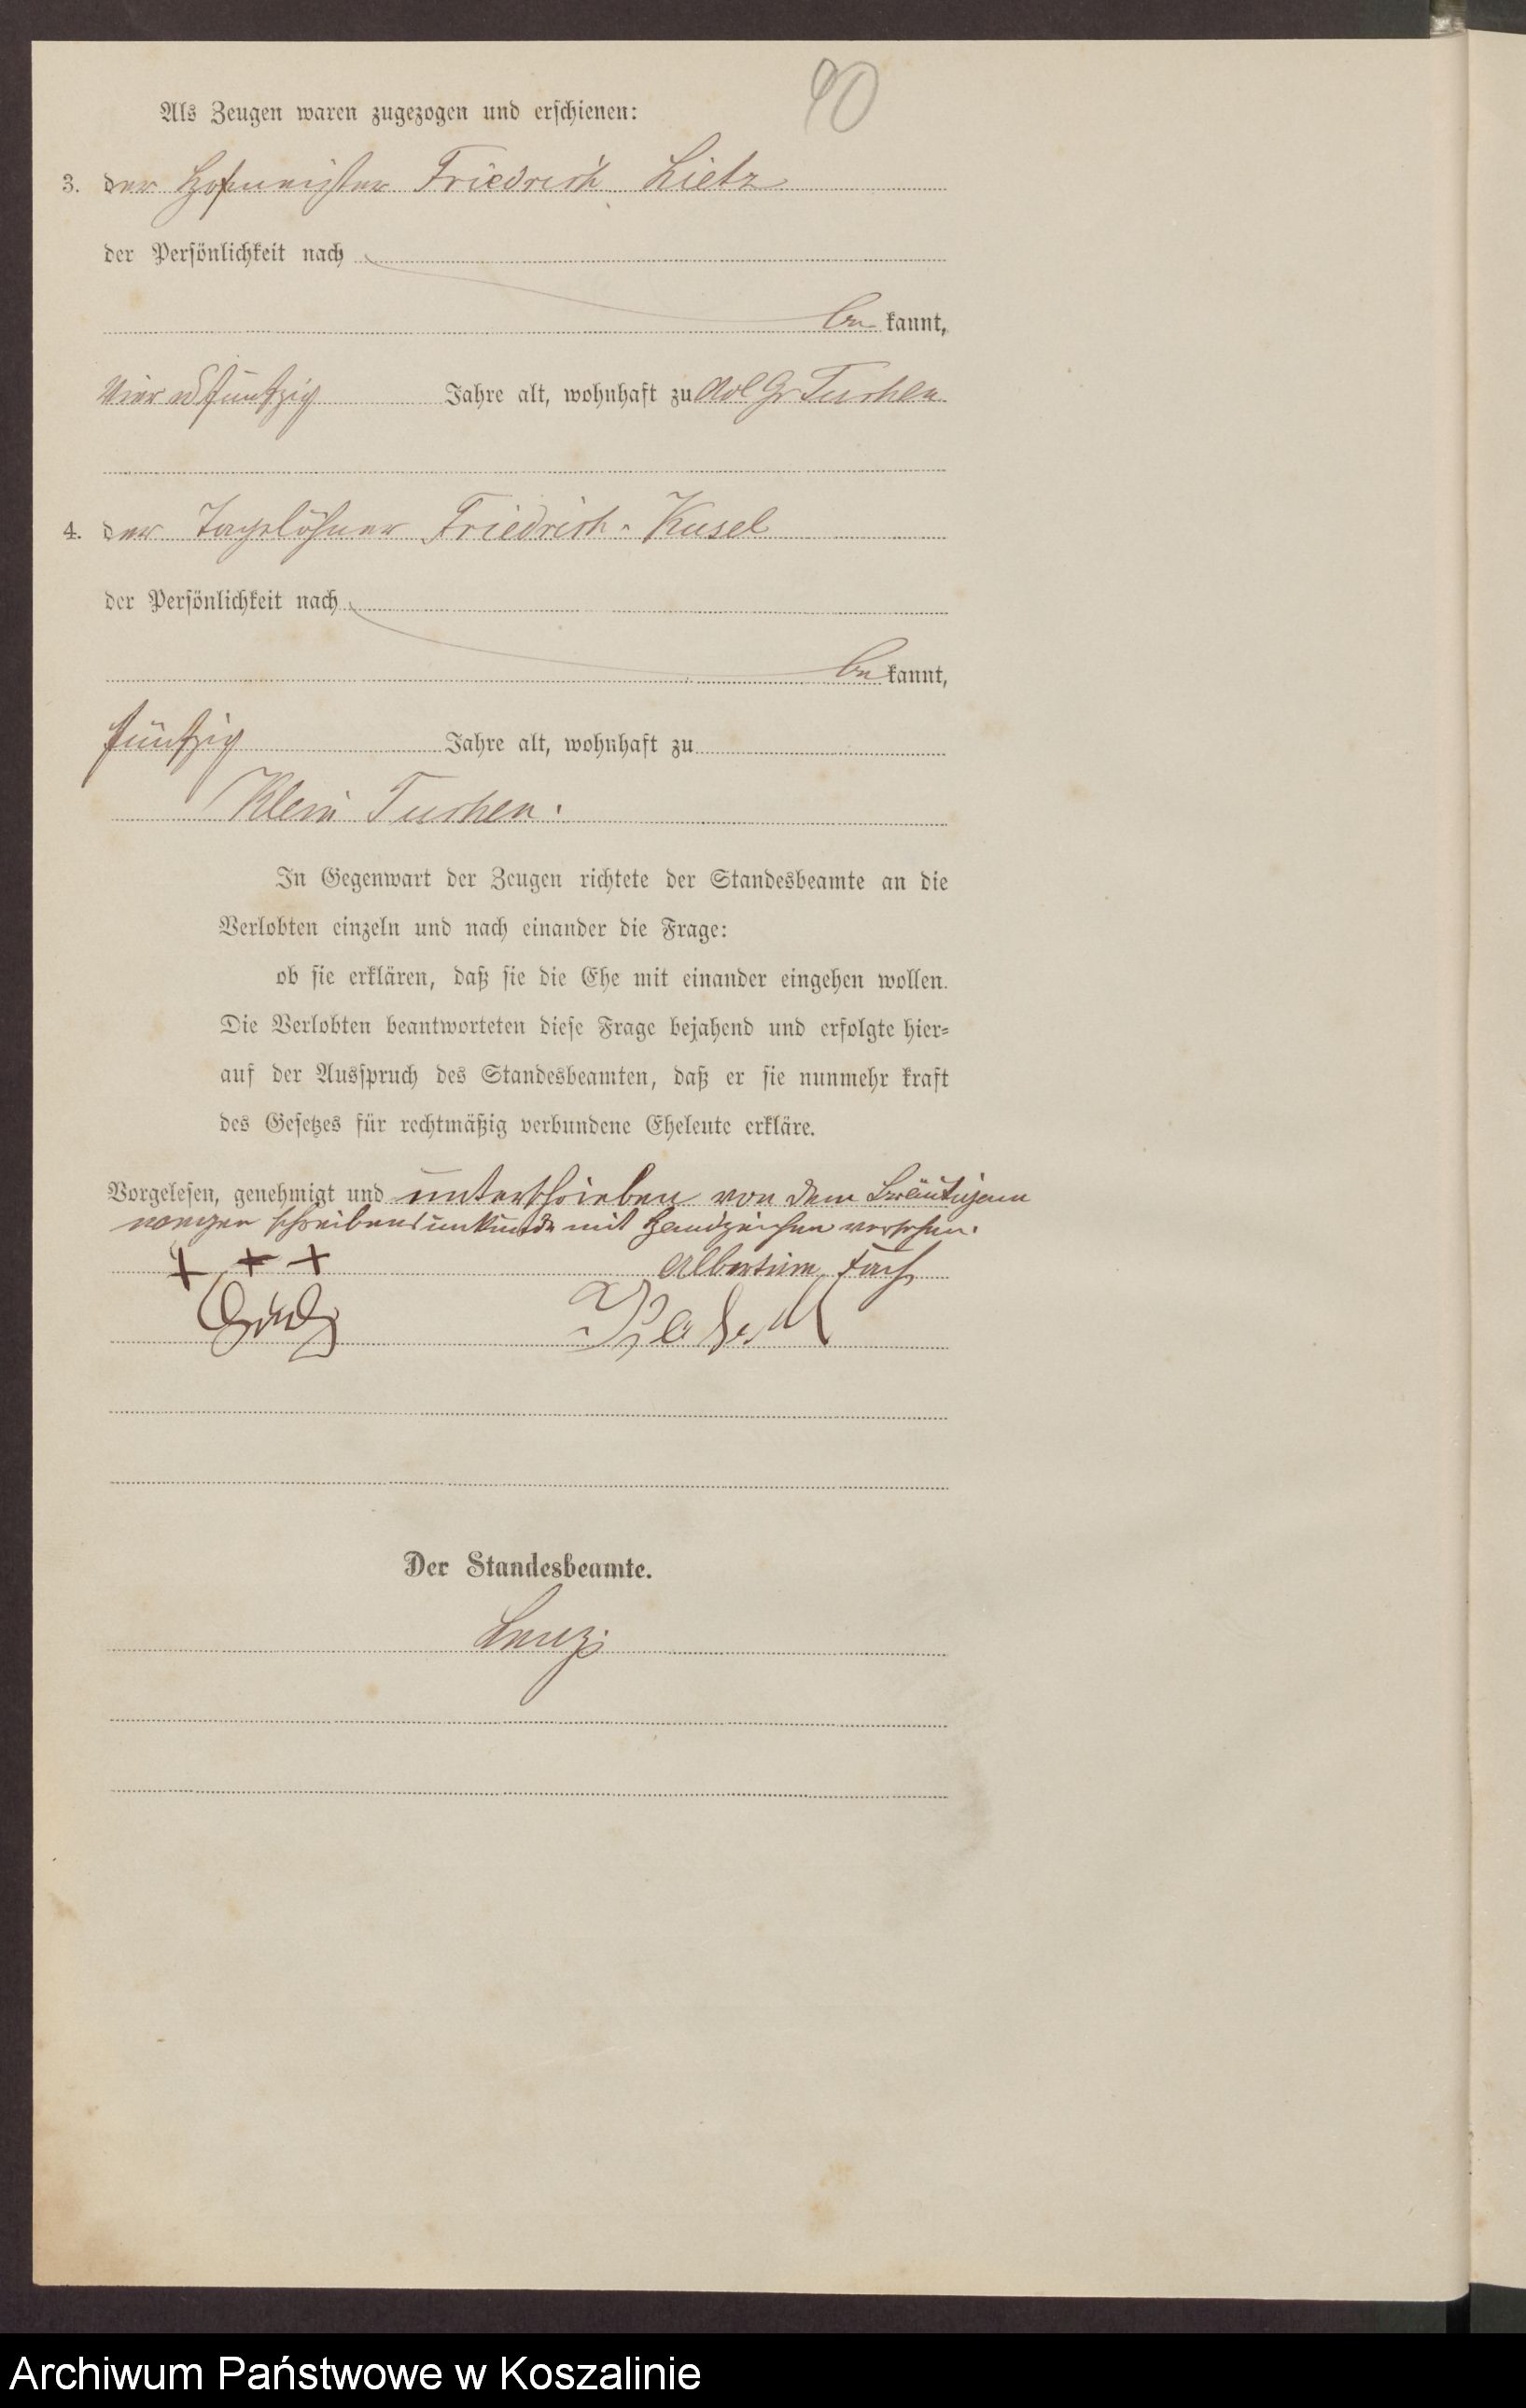 90
Als Zeugen waren zugezogen und erschienen:
3. der Hofmeister Friedrich Lietz
der Persönlichkeit nach
be kannt,
vier u fünfzig Jahre alt, wohnhaft zu Adl Gr Tuchen
4. der Tagelöhner Friedrich Kusel
der Persönlichkeit nach
be kannt,
fünfzig Jahre alt, wohnhaft zu
Klein Tuchen.
In Gegenwart der Zeugen richtete der Standesbeamte an die
Verlobten einzeln und nach einander die Frage:
ob sie erklären, daß sie die Ehe mit einander eingehen wollen.
Die Verlobten beantworteten diese Frage bejahend und erfolgte hier-
auf der Ausspruch des Standesbeamten, daß er sie nunmehr kraft
des Gesetzes für rechtmäßig verbundene Eheleute erkläre.
Vorgelesen, genehmigt und unterschrieben von dem Bräutigam
wegen Schreibensunkunde mit Handzeichen versehen.
+ + + Albertine
Der Standesbeamte.
Archiwum Państwowe w Koszalinie